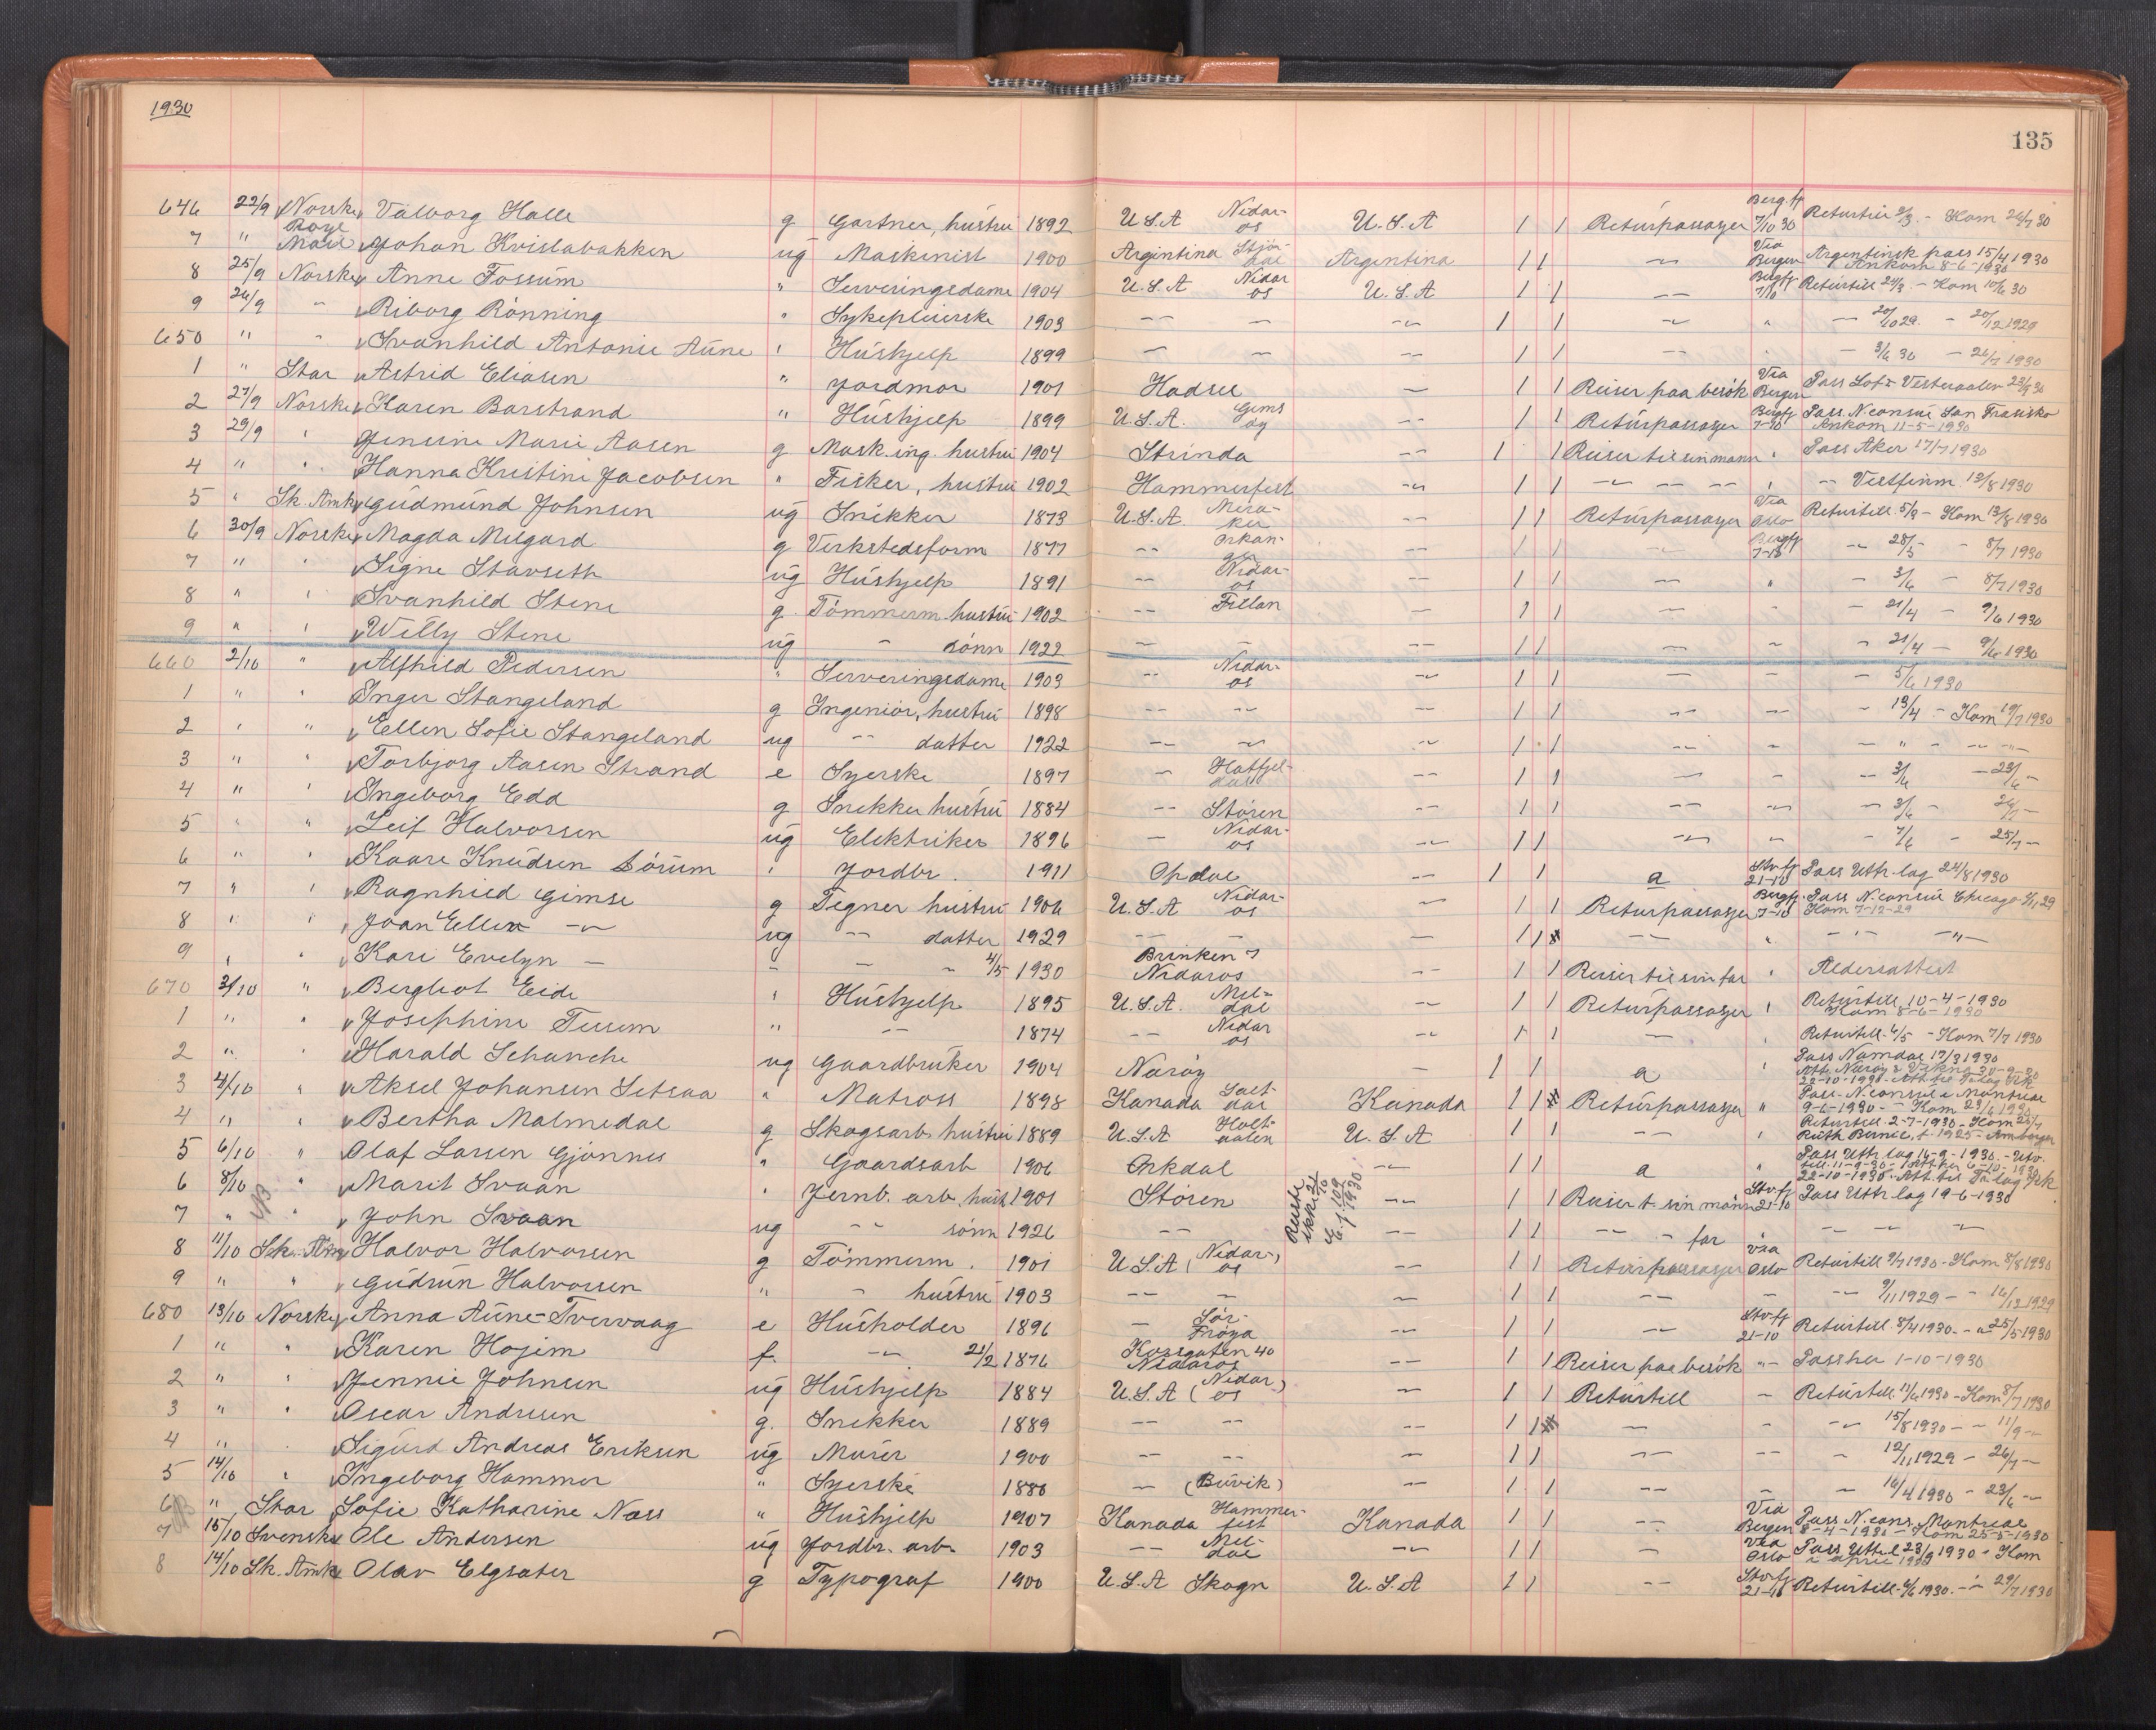 1930
135
646 22/9 Norske Valborg Halle g Gartner, hustru 1892 U.S.A Nidaros U.S.A 1 1 Returpassasjer Bergfj 7/10 30 Returtill 2/3 - Kom 24/7 30
7 " Roye Mail Johan Kvislabakken ug Maskinist 1900 Argintina Stjördal Argentina 1 1 -"- Via Bergen Argentinsk pass 15/4 1930 Ankom 8-6-1930
8 25/9 Norske Anne Fossum " Serveringsdame 1904 U.S.A Nidaros U.S.A 1 1 -"- Bergfj 7/10 Returtill 29/9 - Kom 10/6 30
9 26/9 " Riborg Rönning " Sykepleierske 1903 -"- - -"- 1 1 -"- " - 20/10 29. - 20/12 1929
650 " " Svanhild Antonie Aune " Hushjelp 1899 - - -"- 1 1 -- " - 3/6 30 - 26/7 1930
1 " Star Astrid Eliasen " Jordmor 1901 Hadsel - 1 1 Reiser paa besök Via Bergen Pass Lof- Vesteraalen 23/9 30
2 27/9 Norske Karen Barstrand " Hushjelp 1899 U.S.A. Gimsöy - 1 1 Returpassasjer Bergfj 7-10 Pass. N.consul San Frasisko Ankom 11-5-1930
3 29/9 " Jensine Marie Aasen g Mask.ing. hustru 1904 Strinda -- 1 1 Reiser til sin mann " Pass Aker 17/7 1930
4 " " Hanna Kristine Jacobsen " Fisker, hustru 1902 Hammerfest -"- 1 1 -"- -- -- " - Vestfinm. 12/8 1930
5 " Sk. Amk Gudmund Johnsen ug Snikker 1873 U.S.A Meraker -- 1 1 Returpassasjer Via Oslo Returtill. 5/9 - Kom 13/8 1930
6 30/9 Norske Magda Melgard g Verkstedsform 1877 -- Orkanger -- 1 1 - Bergfj 7-10 -"- 28/5 - 8/7 1930
7 " " Signe Stavseth ug Hushjelp 1891 -- Nidaros -- 1 1 -- " - 3/6 - 8/7 1930
8 " " Svanhild Stene g Tömmerm. hustru 1902 -- Fillan - 1 1 -- - - 21/4 - 9/6 1930
9 " " Willy Stene ug - sönn 1922 - - -- 1 1 - - - 21/4 - 9/6 1930
660 2/10 " Alfhild Pedersen " Serveringsdame 1903 -- Nidaros -"- 1 1 -- - - 5/6 1930
1 " " Inger Stangeland g Ingeniör, hustru 1898 -- -"- -- 1 1 -- -- - 13/4 - Kom 19/7 1930
2 " " Ellen Sofie Stangeland ug -- datter 1922 -- -"- -"- 1 1 -"- - - " - -"- -"-
3 " " Torbjorg Aasen Strand e Syerske 1897 - Hatfjeldal -- 1 1 -- - -- 3/6 - 23/6 -
4 " " Ingeborg Edd g Snekker hustru 1884 -- Stören -- 1 1 -- -"- - 3/6 - 26/7 -
5 " " Leif Halvorsen ug Elektriker 1896 - Nidaros -"- 1 1 -"- - - 7/6 - 25/7 -
6 " " Kaare Knudsen Sörum " Jordbr. 1911 Opdal -- 1 1 a Stvfj 21-10 Pass Uttr.lag 24/8 1930
7 " " Ragnhild Gimse g Tegner hustru 1906 U.S.A Nidaros -"- 1 1 Returpassasjer Bergfj. 7-10 Pass N.consul Chicago 5/11 29 Kom 7-12-29
8 " " Joan Ellen -"- ug -- datter 1929 -- -- - 1 1 -- " - " - -"-
9 " " Kari Evelyn - - - - 4/5 1930 Brinken 7 Nidaros -- 1 1 Reiser til sin far " Aldersattest
670 3/10 " Bergliot Eide " Hushjelp 1895 U.S.A. Meldal -- 1 1 Returpassasjer " Returtill. 10-4-1930 Kom 8-6-1930
1 " " Josephine Tusem " -- 1874 -- Nidaros -"- 1 1 - " Returtill. 6/5 - Kom 7/7 1930
2 " " Harald Schanche ug Gaardbruker 1904 Naröy - 1 1 a " Pass Namdal 17/3 1930 Att. Naröy & Vikna 30-9-30
3 4/10 " Aksel Johansen Setsaa " Matross 1898 Kanada Saltdal Kanada 1 1 Returpassasjer " Pass. N.consul i Montreal 9-6-1930 - Kom 23/6 1930
4 " " Bertha Malmedal g Skogsarb. hustru 1889 U.S.A Holtaalen U.S.A 1 1 -- " Returtill. 2-7-1930 - Kom 25/7 Ruth Bernic, f. 1925
5 6/10 " Olaf Larsen Gjönnes " Gaardsarb 1906 Orkdal -"- 1 1 a " Pass Uttr.lag 16-9-1930.
6 8/10 " Marit Svaan " Jernb. arb. hust. 1901 Stören Reiste ikke 21/10 -- 1 1 Reiser t. sin mann Stvfj 21-10 Pass Uttr.lag 19-6-1930
7 " " John Svaan ug -- sönn 1926 -- E.j. 109 1930 -- 1 1 -- - far - - -
8 11/10 Sk. Amk Halvor Halvorsen g Tömmerm. 1901 U.S.A (Nidaros) -- 1 1 Returpassasjer Via Oslo Returtill 9/7 1930 - Kom 8/8 1930
9 " " Gudrun Halvorsen " - hustru 1903 -- - - 1 1 -- - -- 9/11 1929 - - 16/12 1929
680 13/10 Norske Anna Aune-Tvervaag e Husholder 1896 - Sör-Fröya -- 1 1 -- Stvfj 21-10 Returtill. 8/4 1930 - - 25/5 1930
1 " " Karen Hojem f. -"- 21/2 1876 Korsgaten 40 Nidaros -- 1 1 Reiser paa besök -"- Pass her 1-10-1930
2 " " Jennie Johnsen ug Hushjelp 1884 U.S.A (Nidaros) - 1 1 Returtill - Returtill. 12/6 1930 - Kom 8/7 1930
3 " " Oscar Andresen g. Snekker 1889 -- -- -- 1 1 - - -- 15/8 1930 - - 11/9 -
4 " " Sigurd Andreas Eriksen ug Murer 1900 -- -- - 1 1 -- -- - 12/11 1929 - 26/7 -
5 14/10 " Ingeborg Hammer " Syerske 1886 - (Buvik) - 1 1 -- - - 16/4 1930 - 23/6 -
6 " Star Sofie Katharine Næss " Hushjelp 1907 Kanada Hammerfest Kanada 1 1 -- Via Bergen Pass N.cons. Montreal 8-4-1930 - Kom 25-5-1930
7 15/10 Svenske Ole Andersen ug Jordbr. arb. 1903 -- Meldal -- 1 1 - Via Oslo Pass Utst. 23/9 1930 - Kom i april 1929
8 14/10 Sk. Amk Olav Elgsater g Typograf 1900 U.S.A Skogn U.S.A 1 1 -- Stvfj 21-10 Returtill. 4/6 1930. - - 29/7 1930